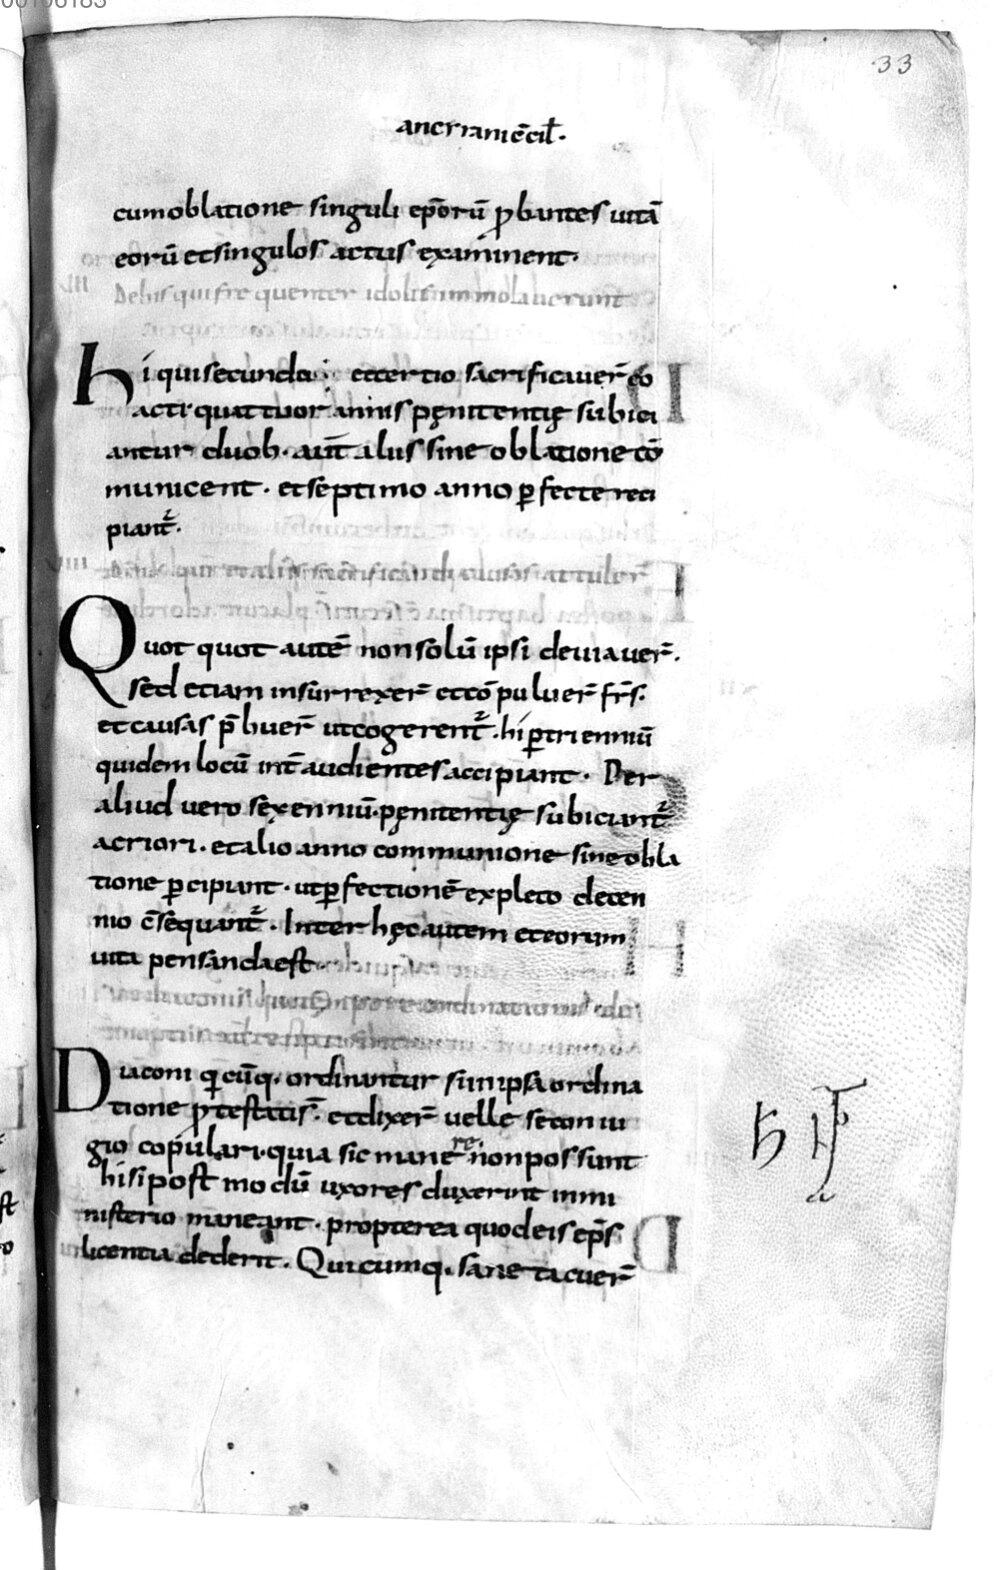 33
ancyrani c̄cil̄.
cum oblatione singuli ep̄orū ꝓbantes uitā
eorū et singulos actus examinent.
De his qui frequenter idolis immolauerunt
hi qui secundo et tertio sacrificauer̄ co
acti quattuor annis pęnitentię subici
antur duob. aut̄ aliis sine oblatione cō
municent. et septimo anno ꝑfecte reci
piant̄.
Quot quot autē non solū ipsi deuiauer̄.
sed etiam insurrexer̄ et cōpuluer̄ fr̄s.
et causas p̄buer̄ ut cogerent̄. hi ꝑtriennium̄
quidem locū int̄ audientes accipiant. Per
aliud uero sexenniū pęnitentię subiciant̄
acriori. et alio anno communione sine obla
tione ꝑcipiant. ut ꝑfectionē expleto decen
nio c̄sequant̄. Inter hęc autem et eorum
uita pensanda est
Diaconi q̄cūq. ordinantur si in ipsa ordina
tione ꝓtestatis. et dixer̄ uelle se coniu
gio copulari. quia sic manere non possunt
hi si postmodū uxores duxerint in mi
nisterio maneant. propterea quod eis ep̄s
licentiā dederit. Quicumq. sane tacuer̄